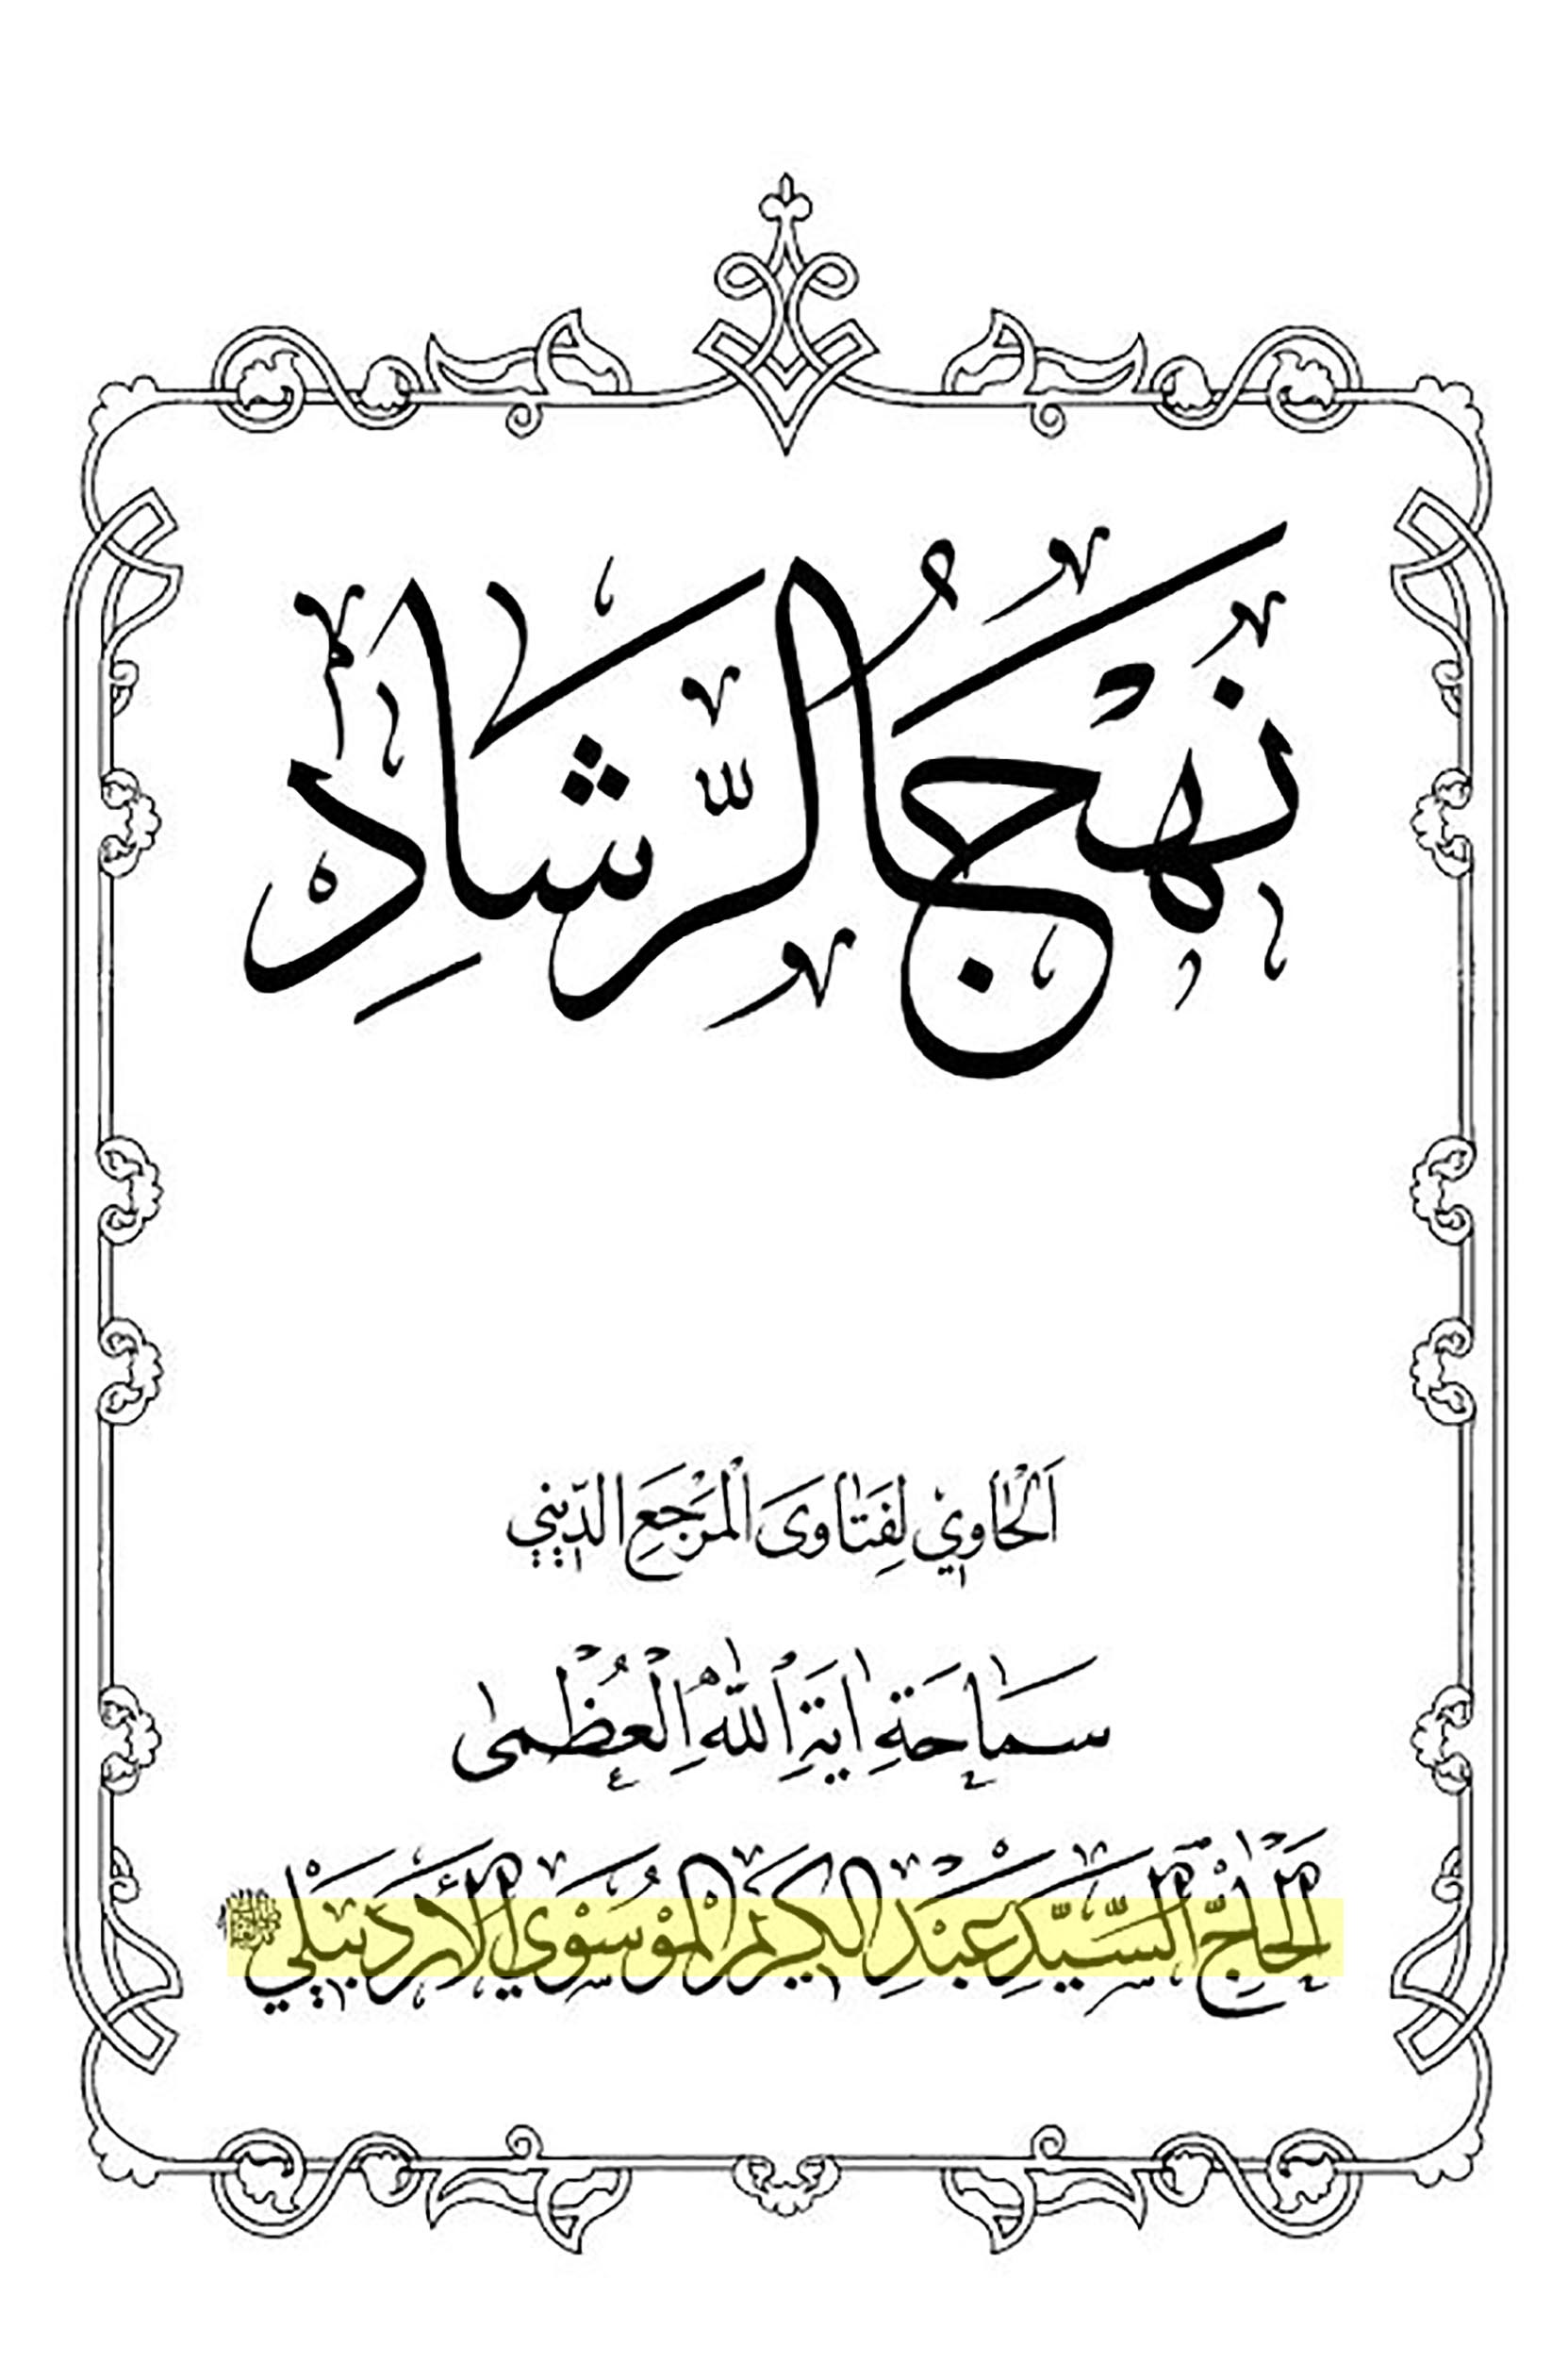 نَهْجُ الرَّشَادِ
اَلْحَاوِي لِفَتَاوَى الْمَرْجَعِ الدِّينِي
سَمَاحَةِ ايَةِ اللهِ الْعُظْمىٰ
الْحَاجِّ السَّيِّدِ عَبْدِ الْكَرِيمِ الْمُوسَوِي الْأَرْدَبَيْلِي